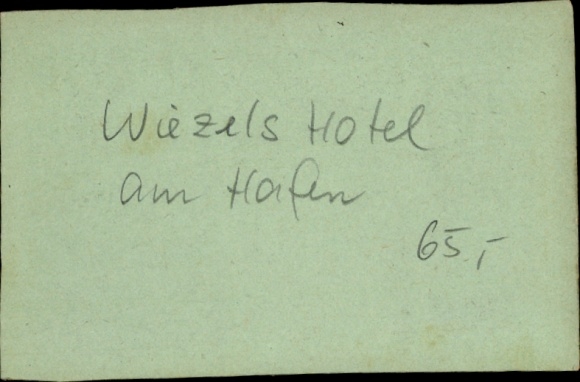 Wiezels Hotel
am Hafen
65,-